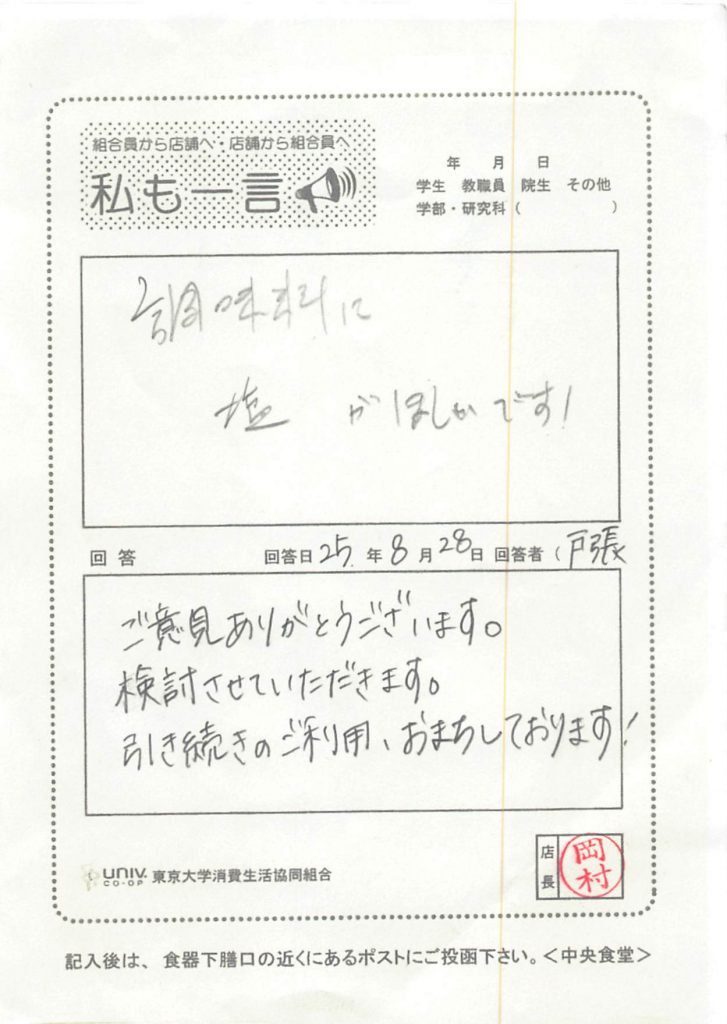 組合員から店舗へ・店舗から組合員へ
私も一言
年 月 日
学生 教職員 院生 その他
学部・研究科（ ）
調味料に
塩 がほしいです!
回答 回答日 25 年 8 月 28 日 回答者（戸張
ご意見ありがとうございます。
検討させていただきます。
引き続きのご利用、おまちしております!
店長 岡村
UNIV. CO-OP 東京大学消費生活協同組合
記入後は、食器下膳口の近くにあるポストにご投函下さい。＜中央食堂＞